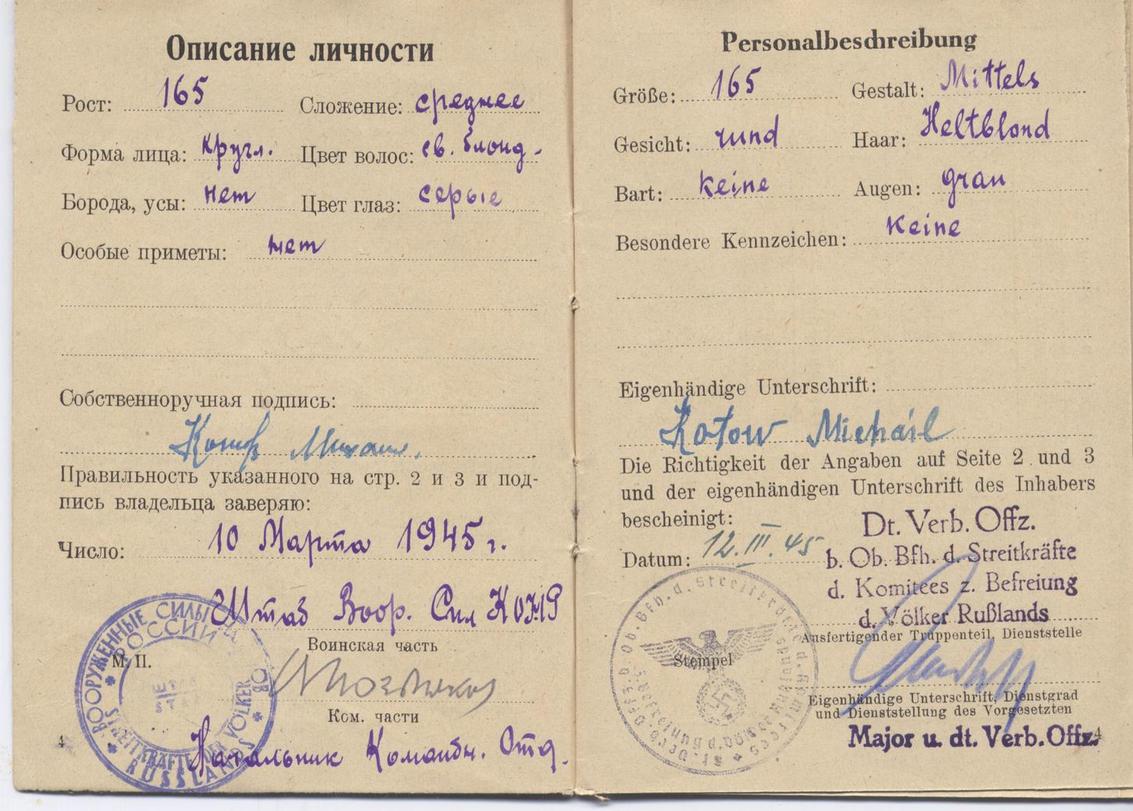 Описание личности
Рост: 165 Сложение: среднее
Форма лица: кругл. Цвет волос: св. блонд.
Борода, усы: нет Цвет глаз: серые
Особые приметы: нет
Собственноручная подпись:
Котов Михаил.
Правильность указанного на стр. 2 и 3 и под-
пись владельца заверяю:
Число: 10 Марта 1945 г.
Штаб Воор. Сил КОНР
Воинская часть
М. П.
Ком. части
Начальник Командн. Отд.
ВООРУЖЕННЫЕ СИЛЫ
РОССИИ
STREITKRÄFTE DER VÖLKER
RUSSLANDS
4
Personalbeschreibung
Größe: 165 Gestalt: Mittels
Gesicht: rund Haar: Heltblond
Bart: keine Augen: grau
Besondere Kennzeichen: keine
Eigenhändige Unterschrift:
Kotow Michail
Die Richtigkeit der Angaben auf Seite 2 und 3
und der eigenhändigen Unterschrift des Inhabers
bescheinigt:
Datum: 12.III.45
Dt. Verb. Offz.
b. Ob. Bfh. d. Streitkräfte
d. Komitees z. Befreiung
d. Völker Rußlands
Ausfertigender Truppenteil, Dienststelle
Stempel
Eigenhändige Unterschrift, Dienstgrad
und Dienststellung des Vorgesetzten
Major u. dt. Verb. Offz.
4